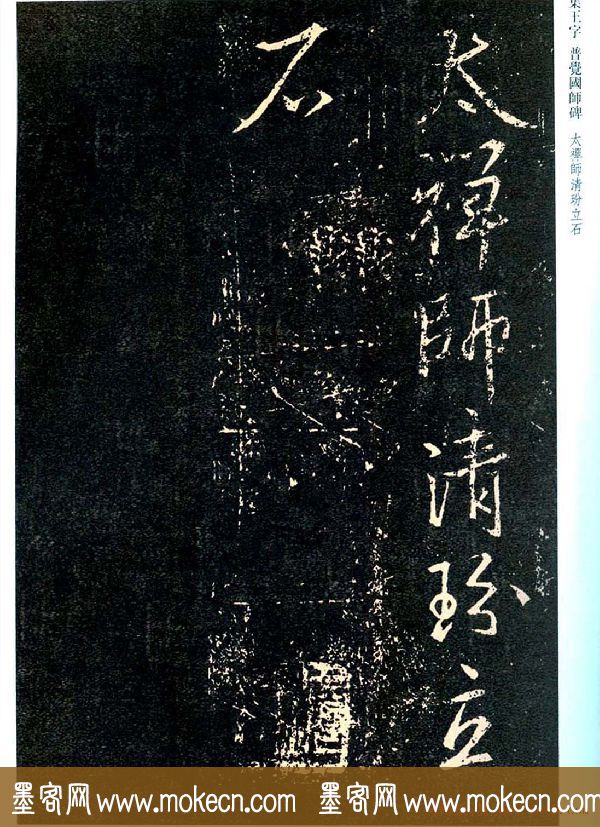 太禪師清玢立
石
集王字 普覺國師碑 太禪師清玢立石
墨客网 www.mokecn.com 墨客网 www.mokecn.com